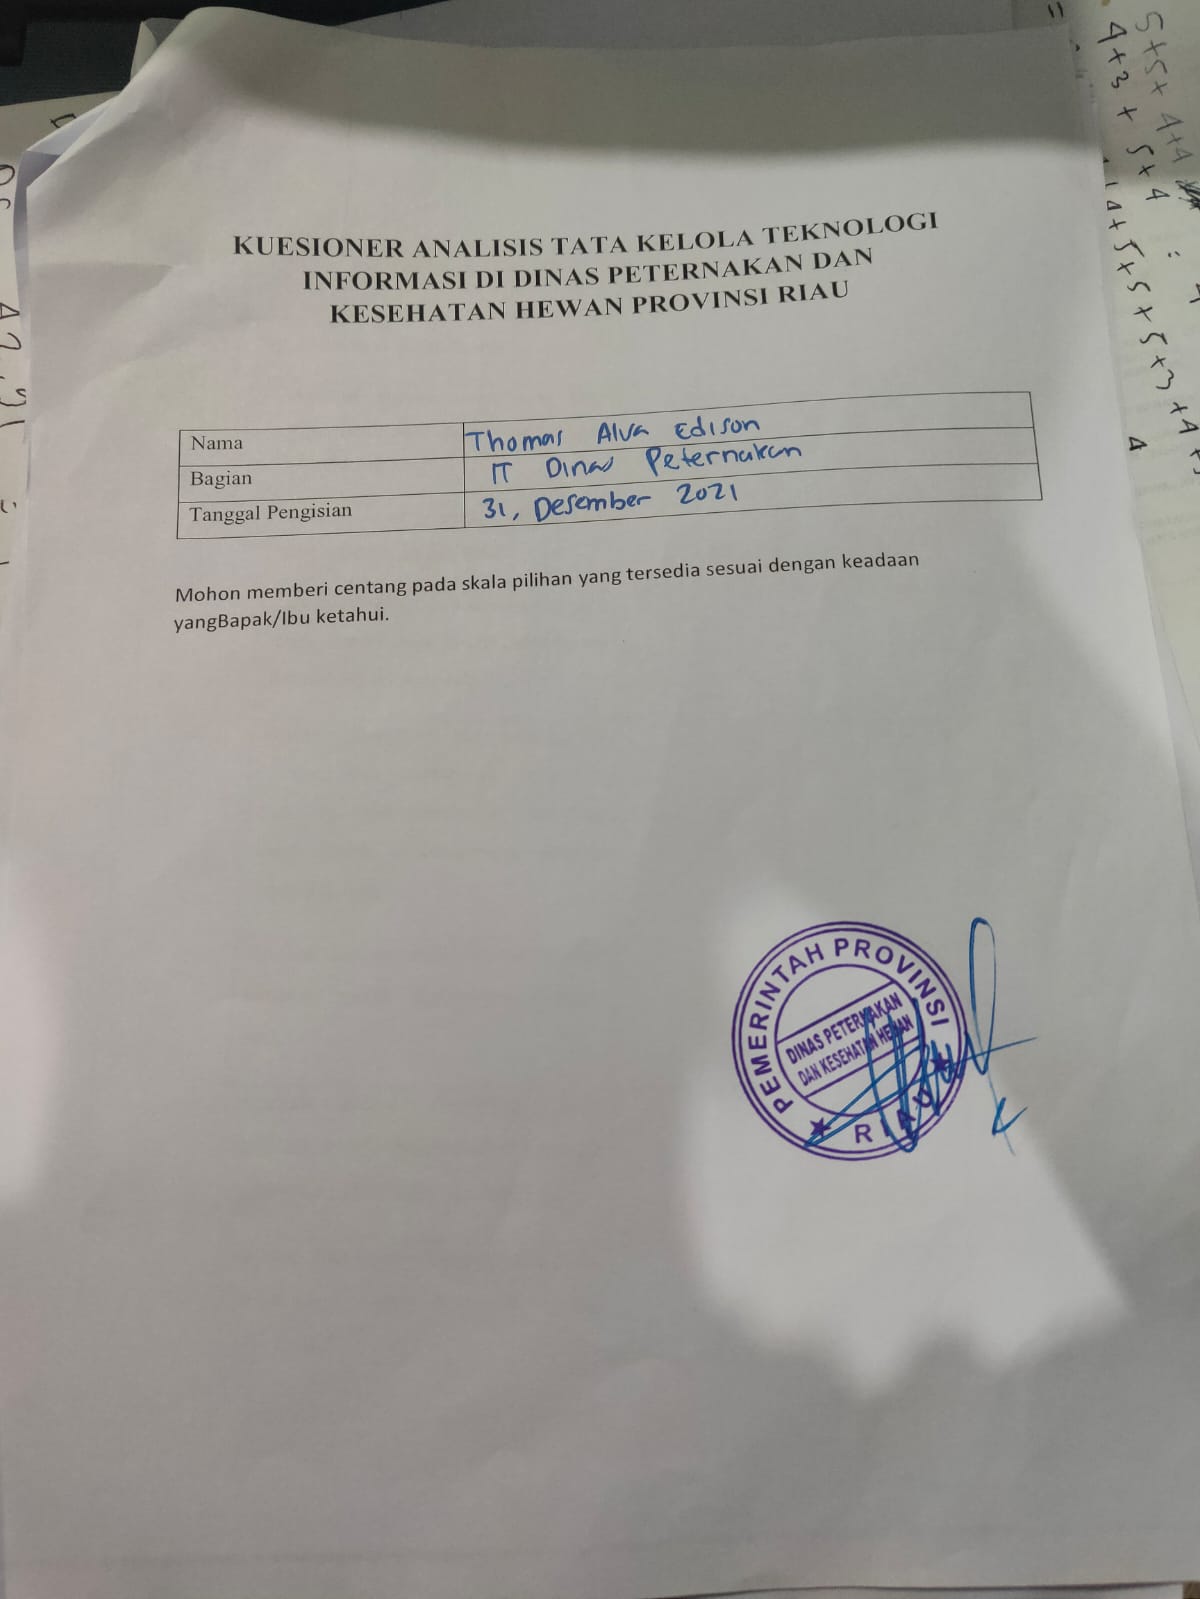 KUESIONER ANALISIS TATA KELOLA TEKNOLOGI
INFORMASI DI DINAS PETERNAKAN DAN
KESEHATAN HEWAN PROVINSI RIAU
Nama Thomas Alva Edison
Bagian IT Dinas Peternakan
Tanggal Pengisian 31, Desember 2021
Mohon memberi centang pada skala pilihan yang tersedia sesuai dengan keadaan
yangBapak/Ibu ketahui.
PEMERINTAH PROVINSI
DINAS PETERNAKAN
DAN KESEHATAN HEWAN
RIAU
5+5+ 4+4
4+3 + 5+4
4+5+5+5+3+4+
4